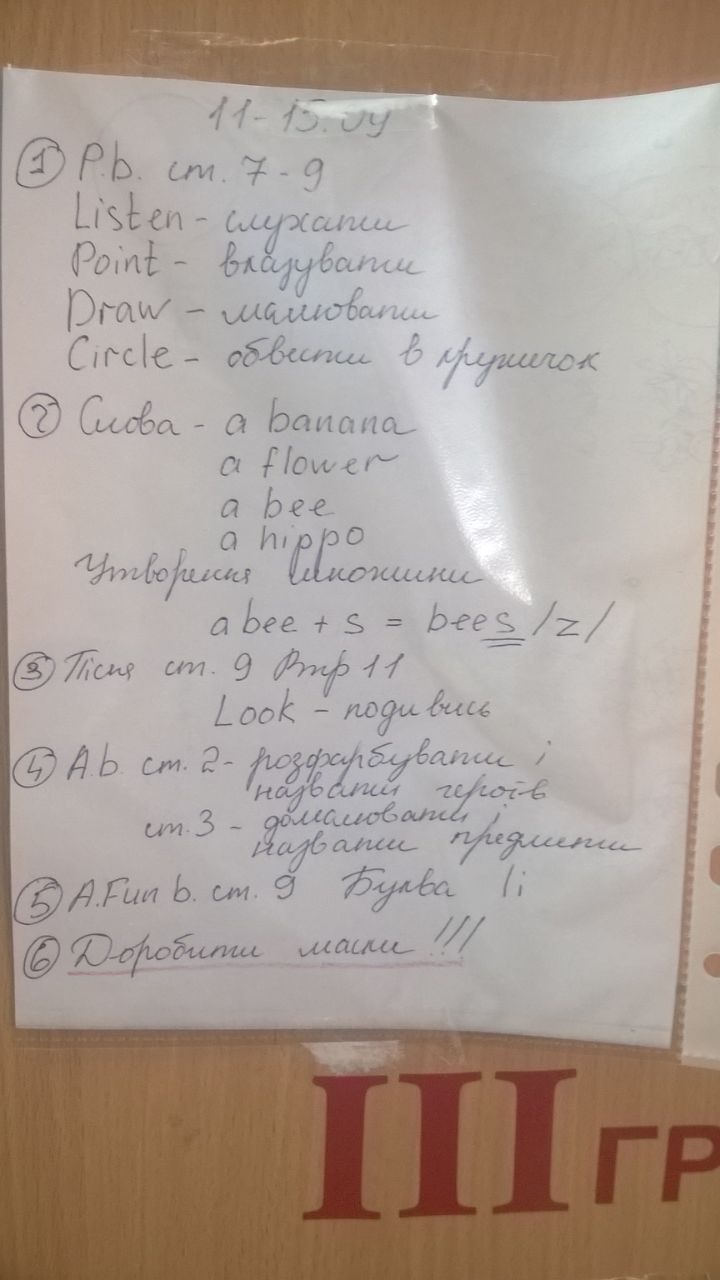 11-15.04
① P.b. ст. 7-9
Listen - слухати
Point - вказувати
Draw - малювати
Circle - обвести в кружечок
② Слова - a banana
a flower
a bee
a hippo
Утворення множини
a bee + s = bees /z/
③ Пісня ст. 9 Впр 11
Look - подивись
④ A.b. ст. 2 - розфарбувати і
назвати героїв
ст. 3 - домалювати і
назвати предмети
⑤ A.Fun b. ст. 9 Буква Ii
⑥ Доробити маски !!!
III ГР